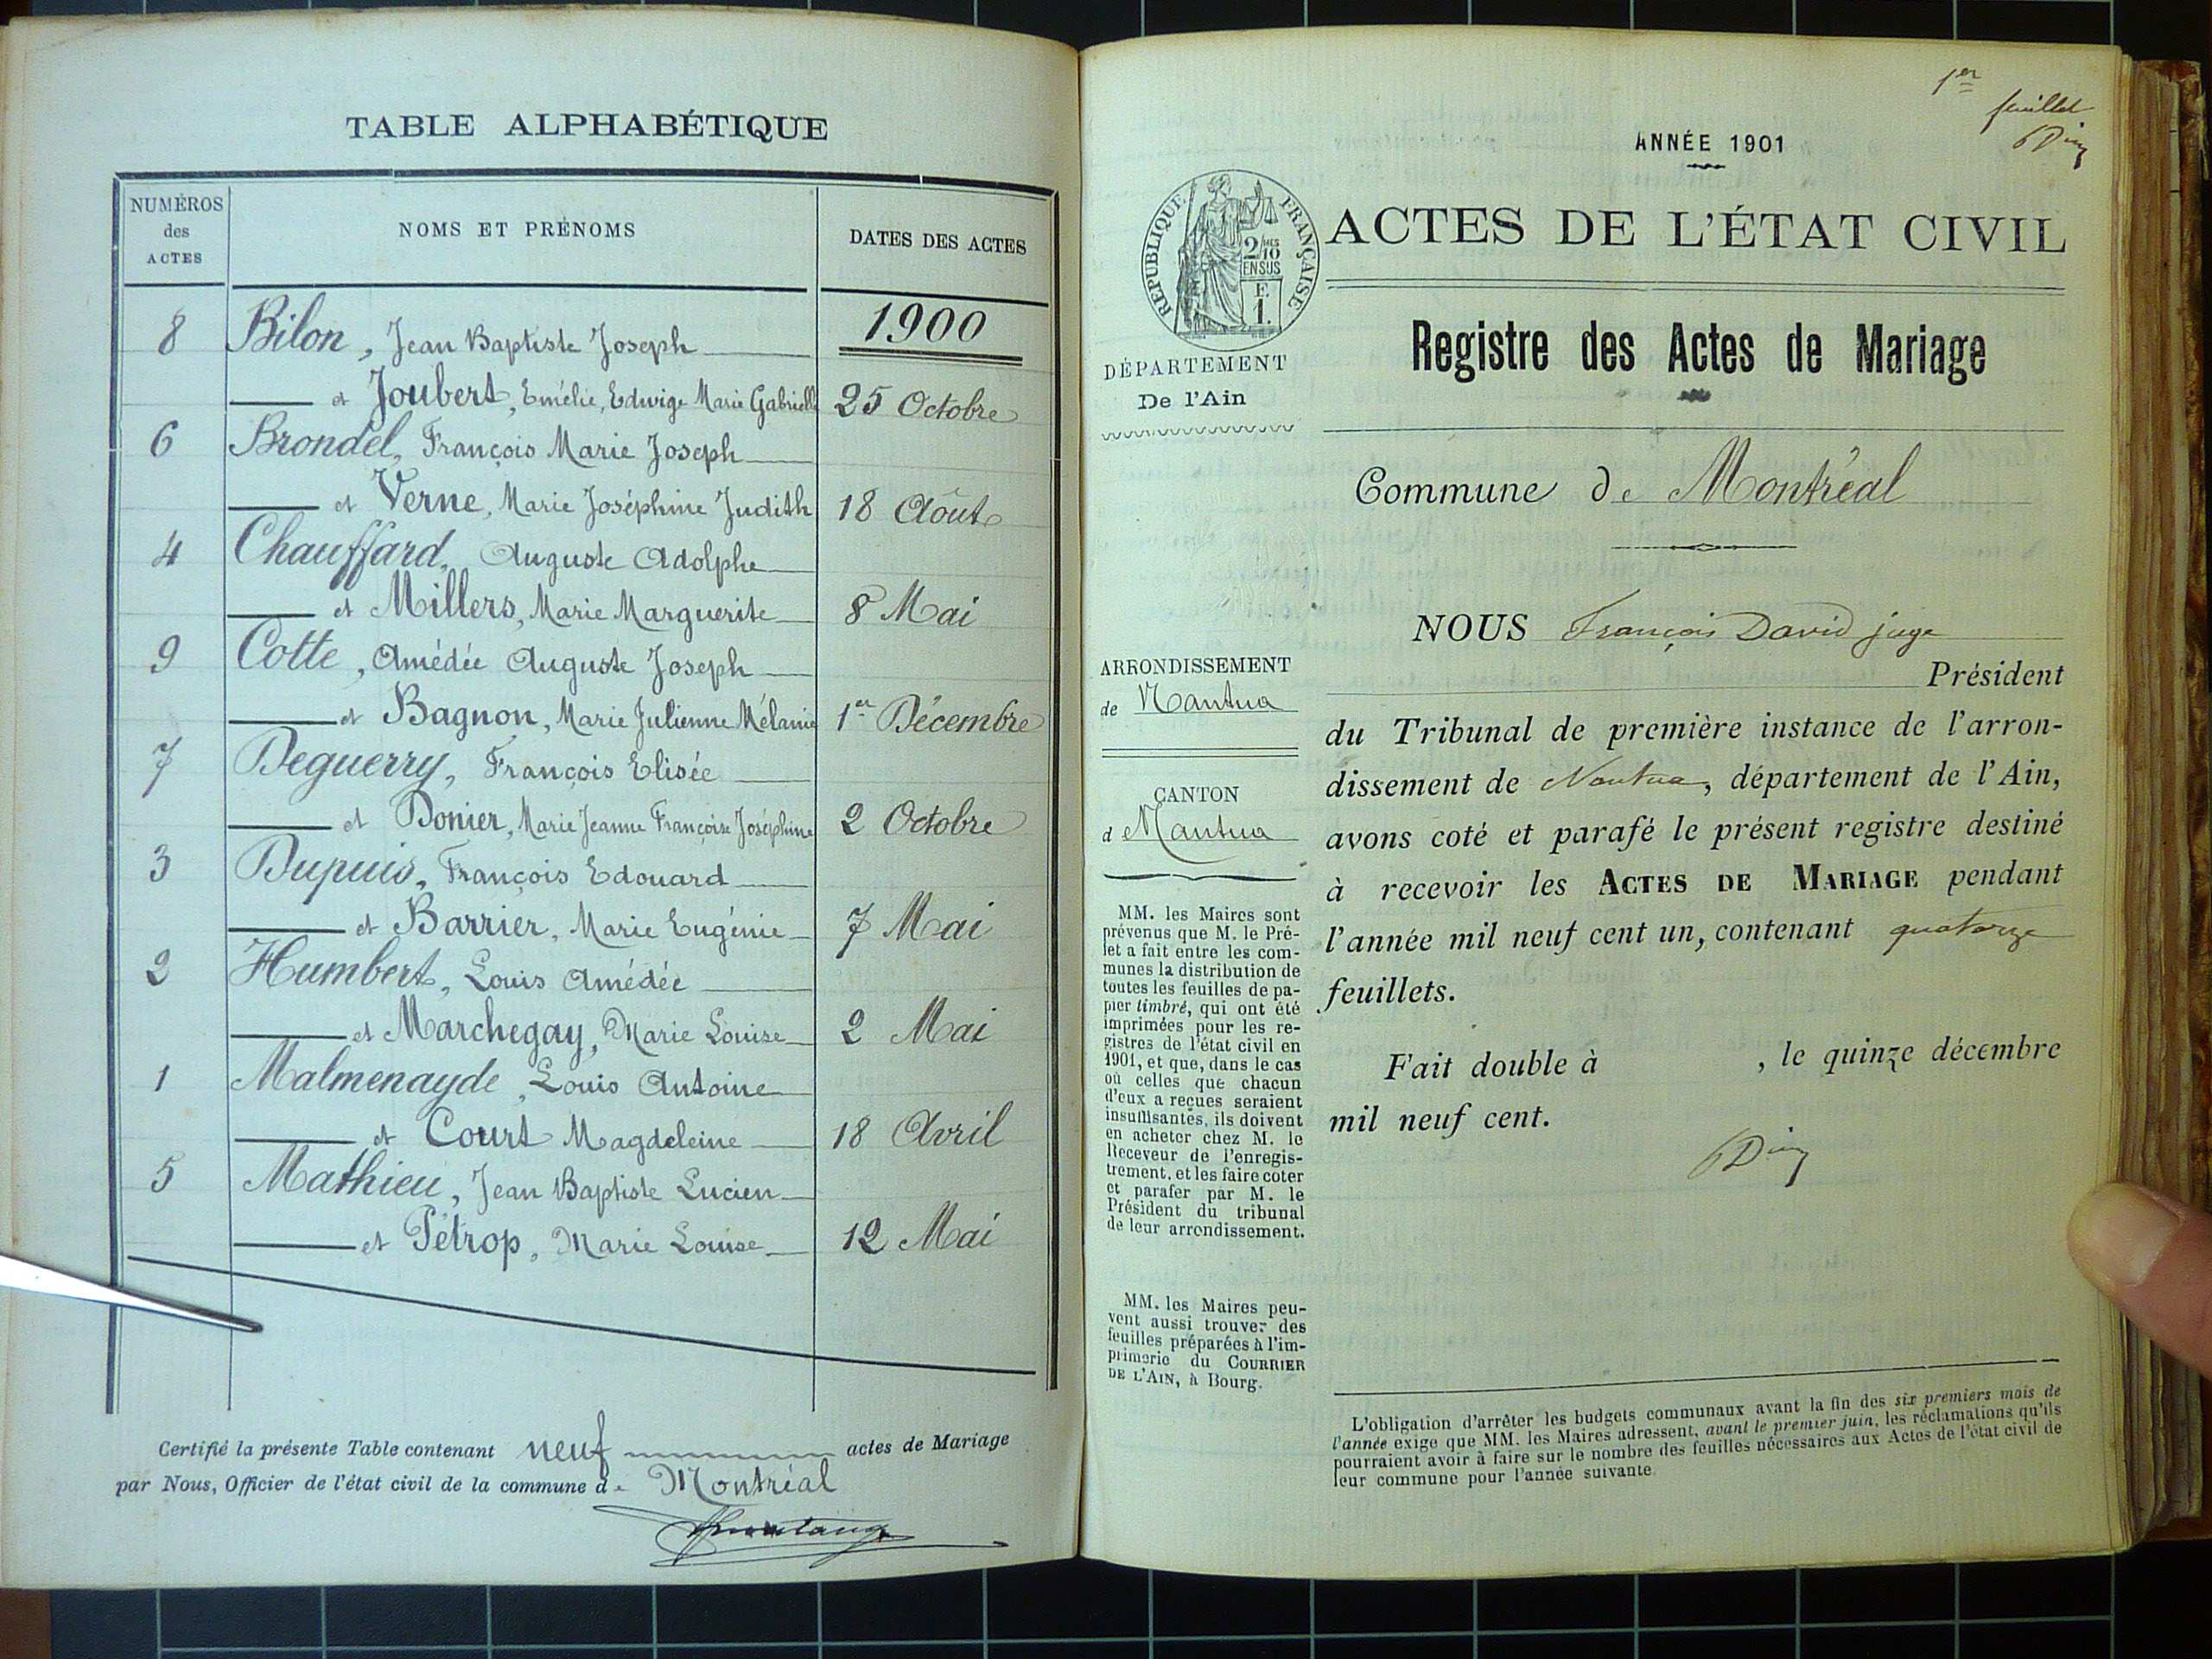 TABLE ALPHABÉTIQUE
NUMÉROS
des
ACTES
NOMS ET PRÉNOMS
DATES DES ACTES
1900
8 Bilon, Jean Baptiste Joseph
et Joubert, Emélie, Edwige Marie Gabrielle 25 Octobre
6 Brondel, François Marie Joseph
et Verne, Marie Joséphine Judith 18 Août
4 Chauffard, Auguste Adolphe
et Millers, Marie Marguerite 8 Mai
9 Cotte, Amédée Auguste Joseph
et Bagnon, Marie Julienne Mélanie 1er Décembre
7 Deguerry, François Elisée
et Donier, Marie Jeanne Françoise Joséphine 2 Octobre
3 Dupuis, François Edouard
et Barrier, Marie Eugénie 7 Mai
2 Humbert, Louis Amédée
et Marchegay, Marie Louise 2 Mai
1 Malmenayde, Louis Antoine
et Court Magdeleine 18 Avril
5 Mathieu, Jean Baptiste Lucien
et Pétrop, Marie Louise 12 Mai
Certifié la présente Table contenant neuf actes de Mariage
par Nous, Officier de l'état civil de la commune d. Montréal
1er
feuillet
ANNÉE 1901
RÉPUBLIQUE FRANÇAISE
2/10
EN SUS
1.
ACTES DE L'ÉTAT CIVIL
Registre des Actes de Mariage
DÉPARTEMENT
De l'Ain
Commune de Montréal
ARRONDISSEMENT
de Nantua
CANTON
d Nantua
MM. les Maires sont
prévenus que M. le Pré-
fet a fait entre les com-
munes la distribution de
toutes les feuilles de pa-
pier timbré, qui ont été
imprimées pour les re-
gistres de l'état civil en
1901, et que, dans le cas
où celles que chacun
d'eux a reçues seraient
insuffisantes, ils doivent
en acheter chez M. le
Receveur de l'enregis-
trement, et les faire coter
et parafer par M. le
Président du tribunal
de leur arrondissement.
MM. les Maires peu-
vent aussi trouver des
feuilles préparées à l'im-
primerie du COURRIER
DE L'AIN, à Bourg.
NOUS François David juge
Président
du Tribunal de première instance de l'arron-
dissement de Nantua, département de l'Ain,
avons coté et parafé le présent registre destiné
à recevoir les ACTES DE MARIAGE pendant
l'année mil neuf cent un, contenant quatorze
feuillets.
Fait double à , le quinze décembre
mil neuf cent.
L'obligation d'arrêter les budgets communaux avant la fin des six premiers mois de
l'année exige que MM. les Maires adressent, avant le premier juin, les réclamations qu'ils
pourraient avoir à faire sur le nombre des feuilles nécessaires aux Actes de l'état civil de
leur commune pour l'année suivante.